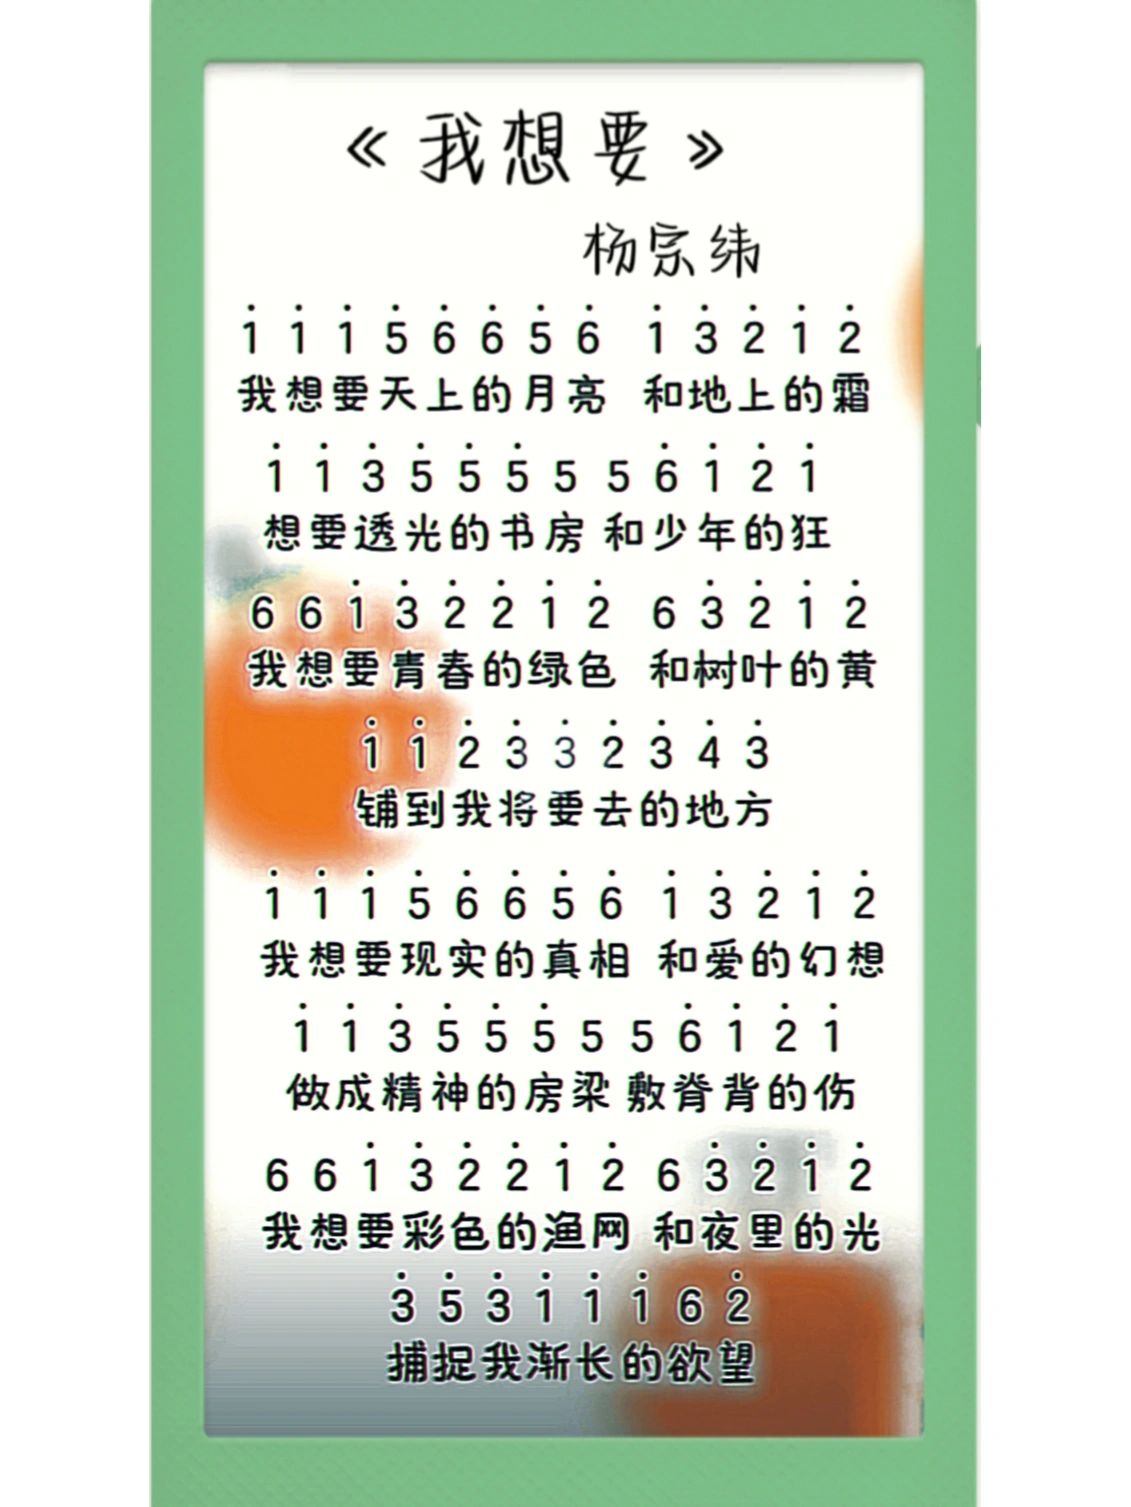 《我想要》
杨宗纬
1̇ 1̇ 1̇ 5̇ 6̇ 6̇ 5̇ 6̇ 1̇ 3̇ 2̇ 1̇ 2̇
我想要天上的月亮 和地上的霜
1̇ 1̇ 3̇ 5̇ 5̇ 5̇ 5 5 6̇ 1̇ 2̇ 1̇
想要透光的书房 和少年的狂
6 6 1̇ 3̇ 2̇ 2̇ 1̇ 2̇ 6 3̇ 2̇ 1̇ 2̇
我想要青春的绿色 和树叶的黄
1̇ 1̇ 2̇ 3̇ 3̇ 2̇ 3̇ 4̇ 3̇
铺到我将要去的地方
1̇ 1̇ 1̇ 5̇ 6̇ 6̇ 5̇ 6̇ 1̇ 3̇ 2̇ 1̇ 2̇
我想要现实的真相 和爱的幻想
1̇ 1̇ 3̇ 5̇ 5̇ 5̇ 5 5 6̇ 1̇ 2̇ 1̇
做成精神的房梁 敷脊背的伤
6 6 1̇ 3̇ 2̇ 2̇ 1̇ 2̇ 6 3̇ 2̇ 1̇ 2̇
我想要彩色的渔网 和夜里的光
3̇ 5̇ 3̇ 1̇ 1̇ 1̇ 6 2̇
捕捉我渐长的欲望